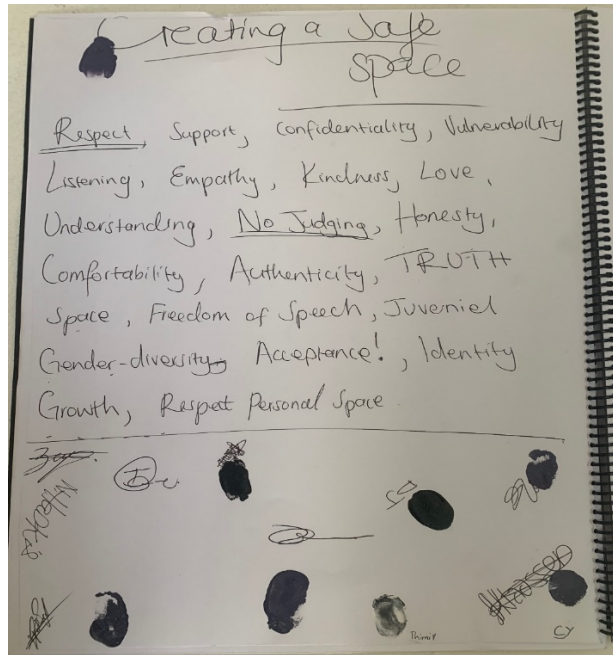 Creating a Safe
Space
Respect, Support, Confidentiality, Vulnerability
Listening, Empathy, Kindness, Love,
Understanding, No Judging, Honesty,
Comfortability, Authenticity, TRUTH
Space, Freedom of Speech, Juveniel
Gender-diversity, Acceptance!, Identity
Growth, Respect Personal Space.
CY